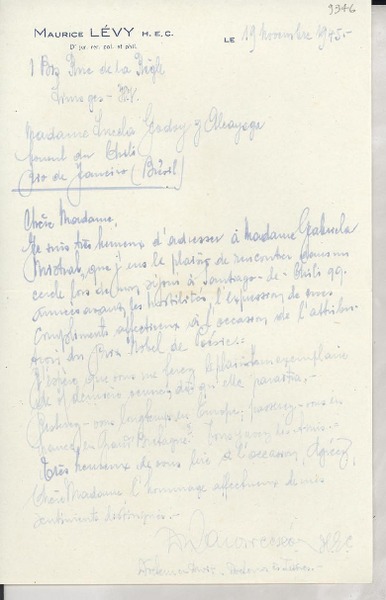 9346
MAURICE LÉVY H. E. C.
Dr jur. rer. pol. et phil.
LE 19 Novembre 1945.-
1 Bis Rue de la Règle
Limoges - H.V.
Madame Lucela Godoy y Alcayaga
Consul du Chili
Rio de Janeiro (Brésil)
Chère Madame,
Je suis très heureux d'adresser à Madame Gabriela
Mistral, que j'eus le plaisir de rencontrer dans un
cercle lors de mon séjour à Santiago-de-Chile qq.
années avant les hostilités, l'expression de mes
compliments affectueux à l'occasion de l'attribu-
tion du Prix Nobel de Poésie.-
J'espère que vous me ferez le plaisir d'un exemplaire
de dès qu'elle paraîtra.-
Resterez-vous longtemps en Europe, passerez-vous en
France, en Grande Bretagne?
Très heureux de vous lire à l'occasion, agréez,
Chère Madame l'hommage affectueux de mes
sentiments distingués.-
HEC